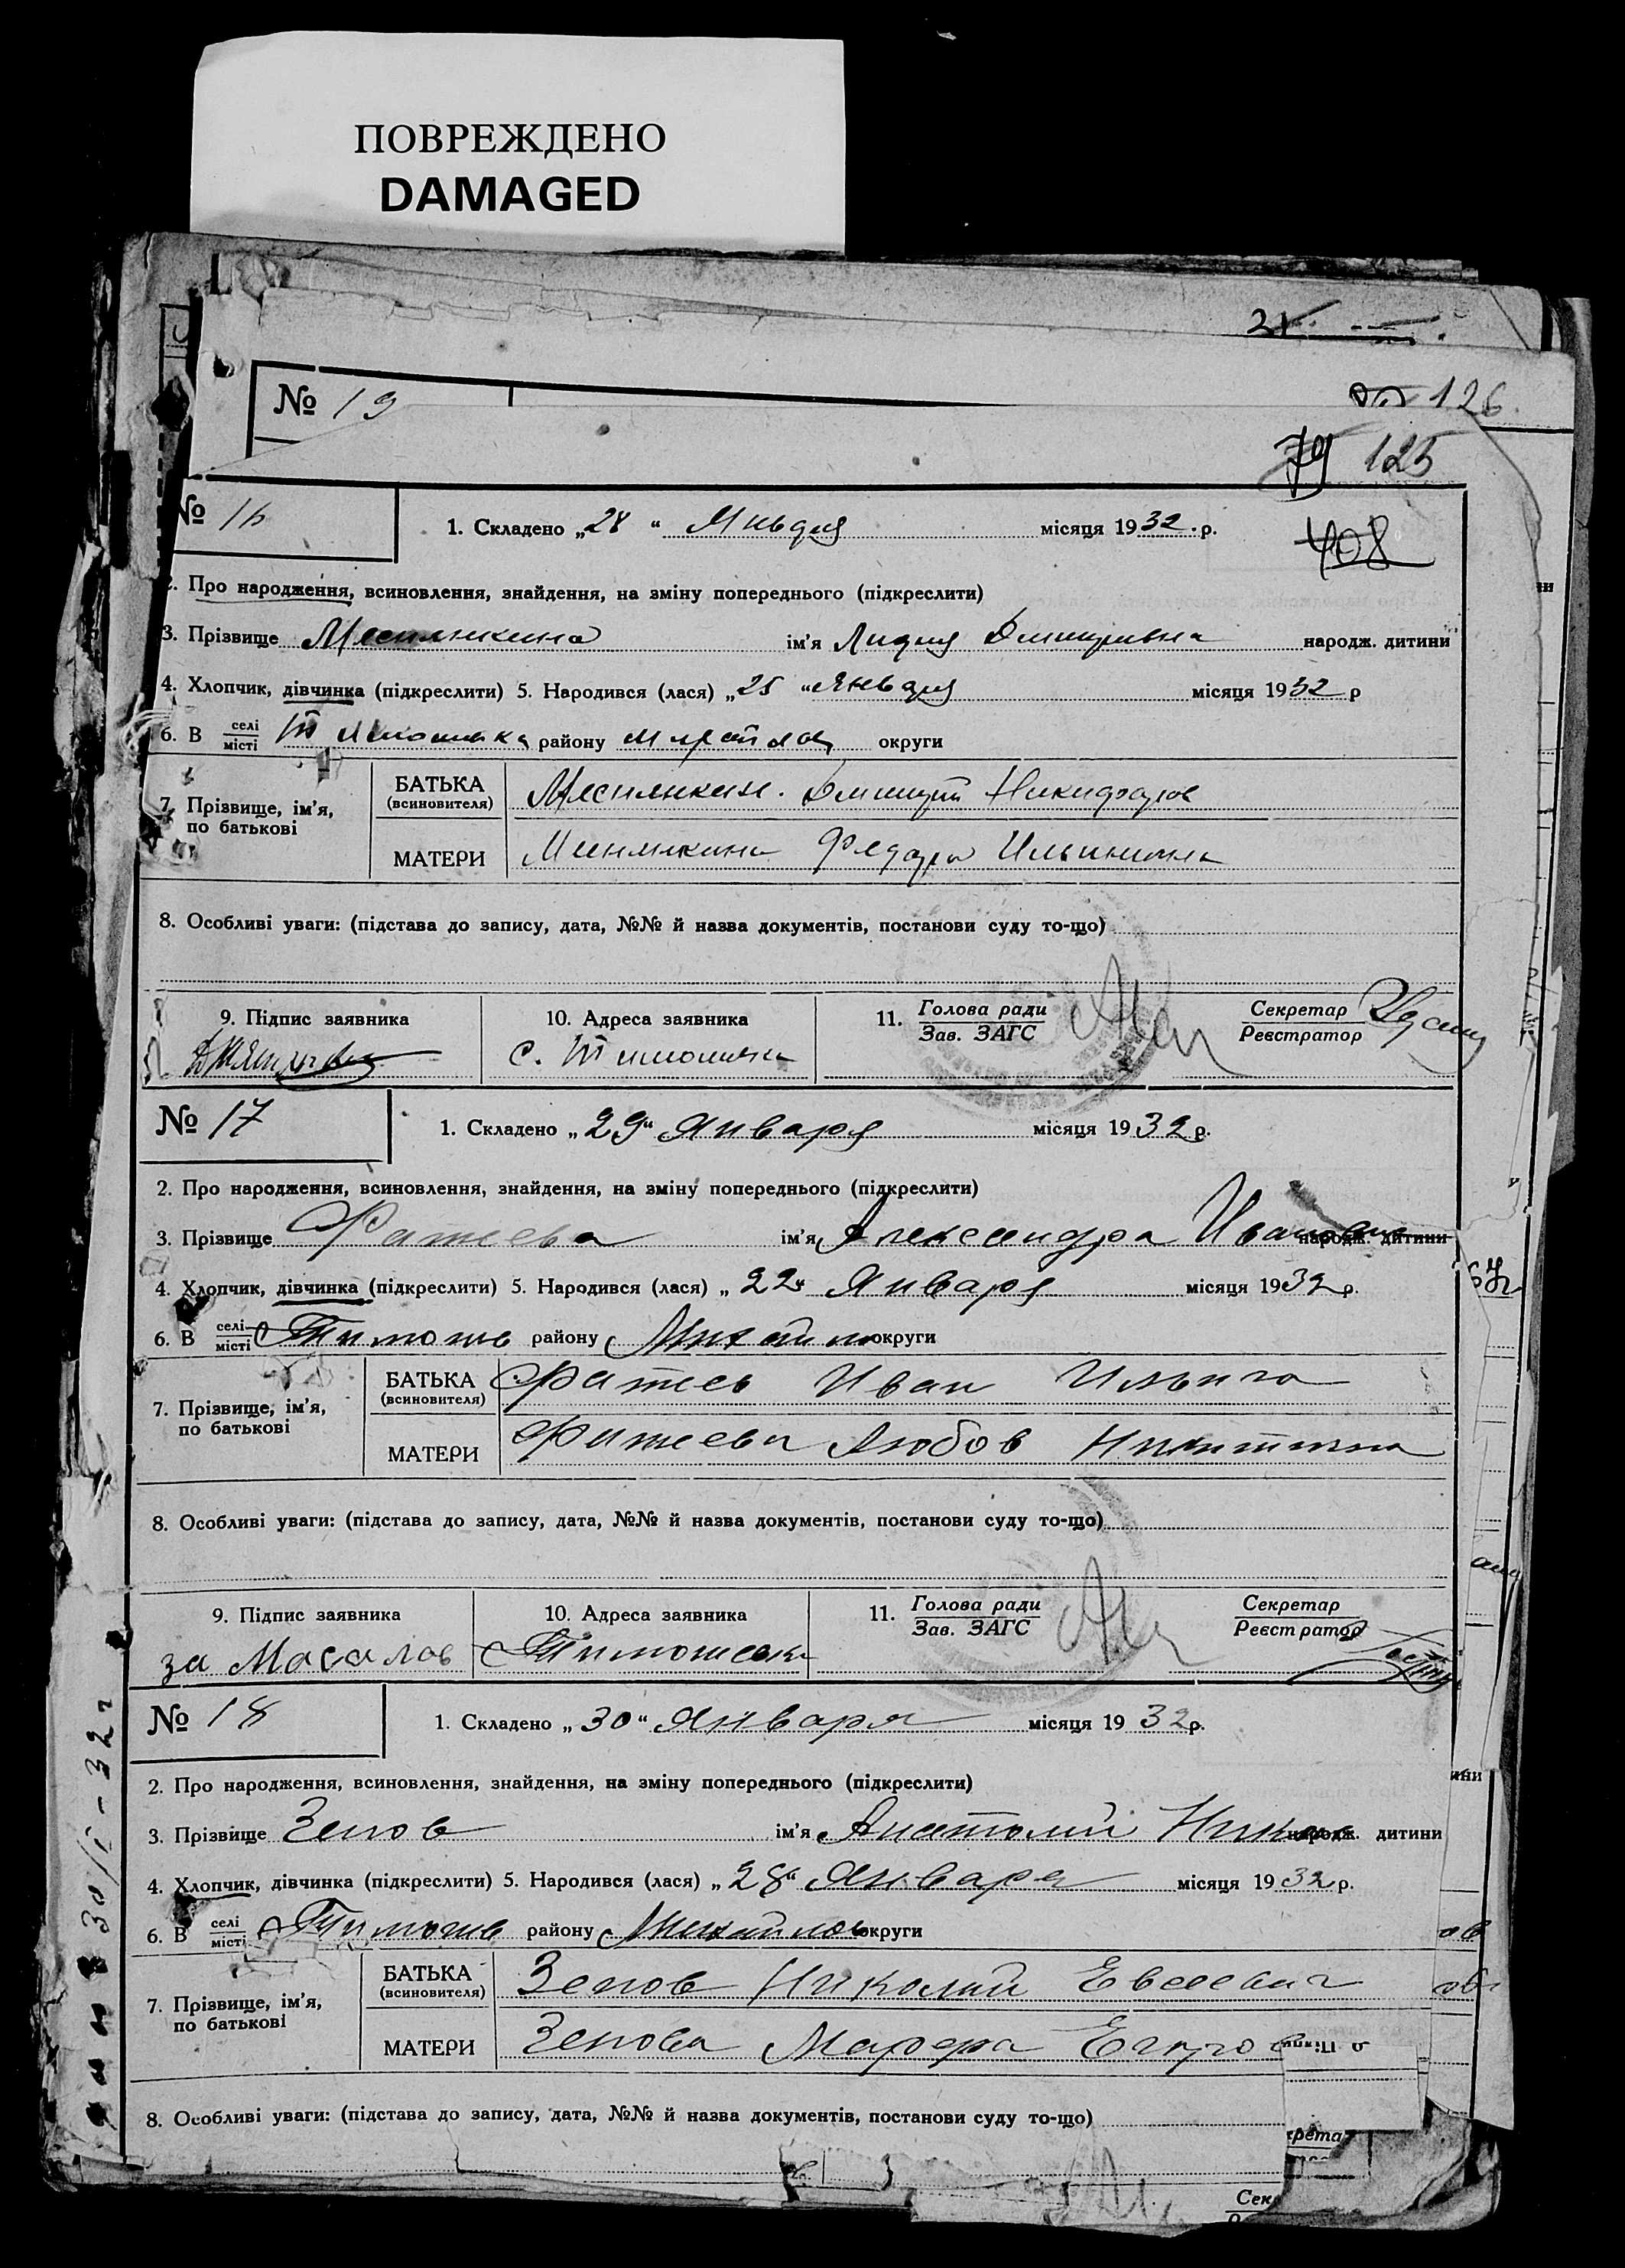 ПОВРЕЖДЕНО
DAMAGED
21
№ 19
126
79 125
№ 16 1. Складено „28“ Января місяця 1932 р.
408
2. Про народження, всиновлення, знайдення, на зміну попереднього (підкреслити)
3. Прізвище ім'я Лидия Дмитривна народж. дитини
4. Хлопчик, дівчинка (підкреслити) 5. Народився (лася) „25“ Января місяця 1932 р
6. В селі місті Тимошивка району округи
7. Прізвище, ім'я, по батькові
БАТЬКА (всиновителя) Дмитрий Никифоров
МАТЕРИ Федора Ильинична
8. Особливі уваги: (підстава до запису, дата, №№ й назва документів, постанови суду то-що)
9. Підпис заявника 10. Адреса заявника 11. Голова ради Зав. ЗАГС Секретар Реєстратор
с. Тимошивка
№ 17 1. Складено „29“ Января місяця 1932 р.
2. Про народження, всиновлення, знайдення, на зміну попереднього (підкреслити)
3. Прізвище Фатеева ім'я Александра Ивановна народж. дитини
4. Хлопчик, дівчинка (підкреслити) 5. Народився (лася) „22“ Января місяця 1932 р.
6. В селі місті Тимоше району Михайло округи
7. Прізвище, ім'я, по батькові
БАТЬКА (всиновителя) Фатеев Иван Ильич
МАТЕРИ Фатеева Любов Никитична
8. Особливі уваги: (підстава до запису, дата, №№ й назва документів, постанови суду то-що)
9. Підпис заявника 10. Адреса заявника 11. Голова ради Зав. ЗАГС Секретар Реєстратор
за Масалов Тимошевка
№ 18 1. Складено „30“ Января місяця 1932 р.
2. Про народження, всиновлення, знайдення, на зміну попереднього (підкреслити)
3. Прізвище Зенов ім'я Анатолий Никол народж. дитини
4. Хлопчик, дівчинка (підкреслити) 5. Народився (лася) „28“ Января місяця 1932 р.
6. В селі місті Тимоше району Михайлов округи
7. Прізвище, ім'я, по батькові
БАТЬКА (всиновителя) Зенов Николай Евсеевич
МАТЕРИ Зенова Марфа
8. Особливі уваги: (підстава до запису, дата, №№ й назва документів, постанови суду то-що)